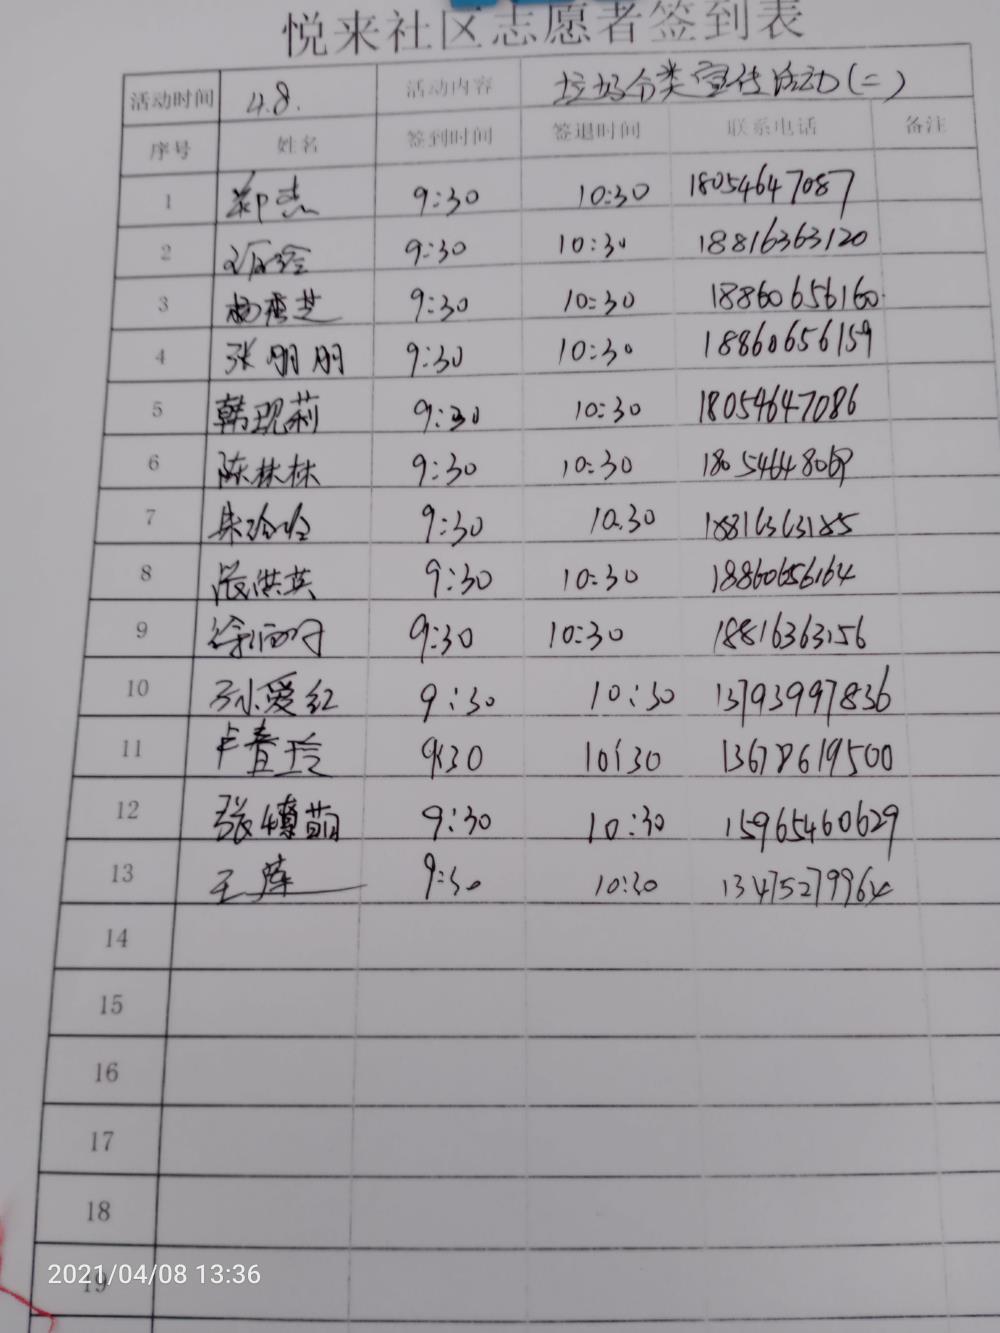 悦来社区志愿者签到表
活动时间 4.8. 活动内容 垃圾分类宣传活动(二)
序号 姓名 签到时间 签退时间 联系电话 备注
1 郑杰 9:30 10:30 18054647087
2 9:30 10:30 18816363120
3 杨秀芝 9:30 10:30 18860656160
4 张朋朋 9:30 10:30 18860656159
5 韩现莉 9:30 10:30 18054647086
6 陈林林 9:30 10:30 18054648069
7 朱玲玲 9:30 10.30 18816363185
8 张洪英 9:30 10:30 18860656164
9 9:30 10:30 18816363156
10 孙爱红 9:30 10:30 13793997836
11 卢春玲 9:30 10:30 13678619500
12 张博萌 9:30 10:30 15965460629
13 王萍 9:30 10:30 13475279964
14
15
16
17
18
19
2021/04/08 13:36